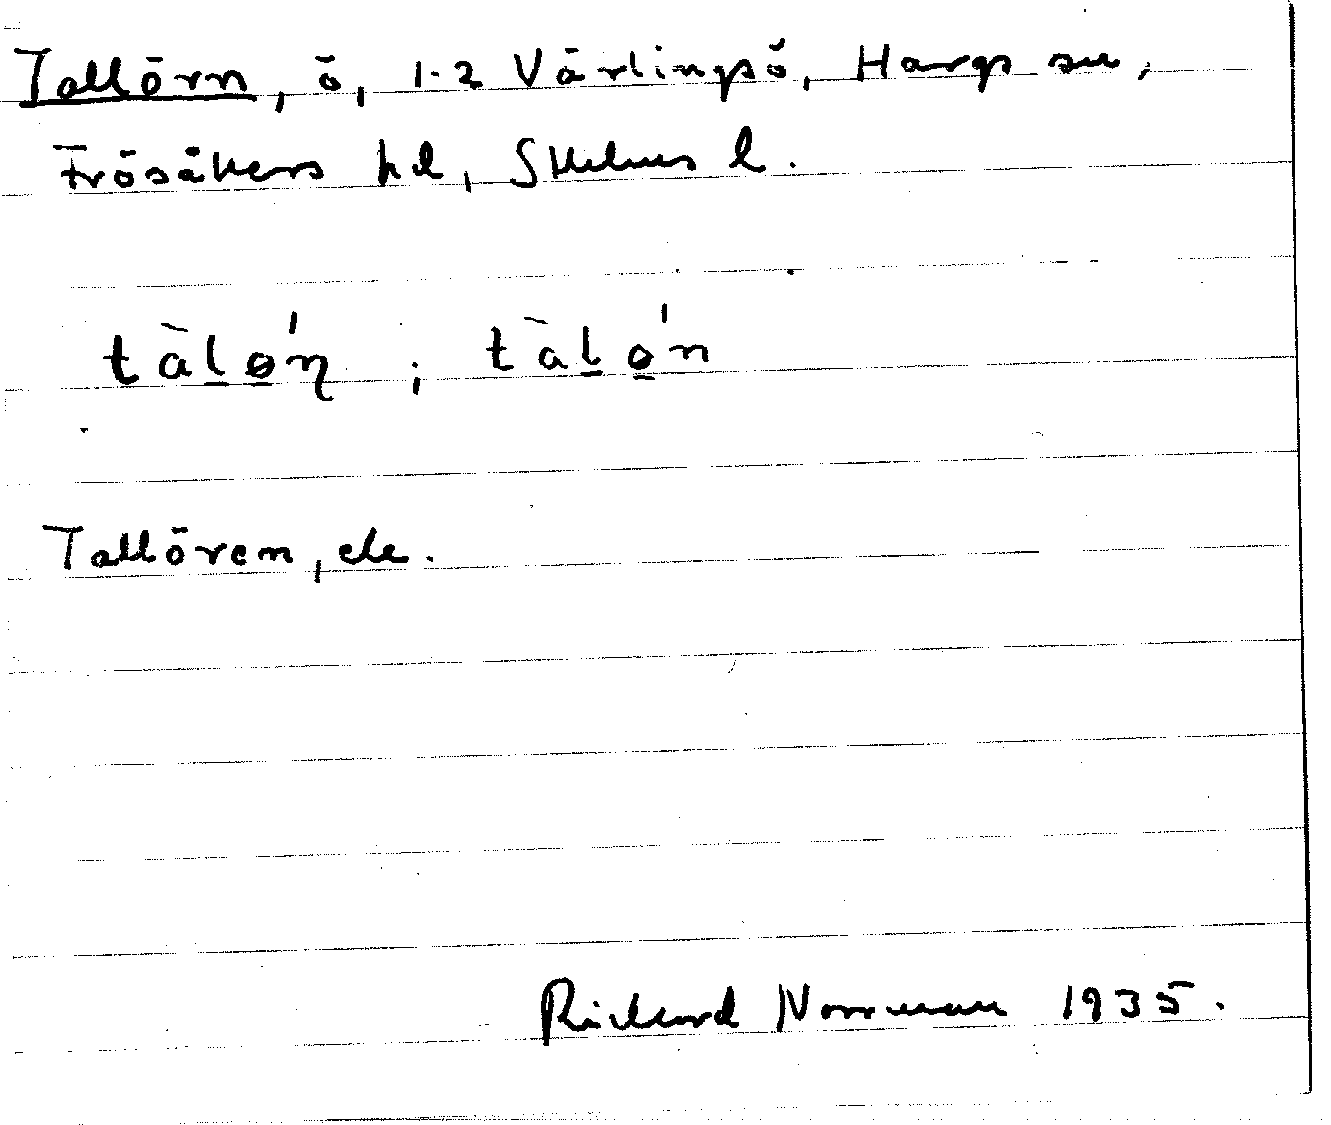 Tallörn, ö, 1-2 Värlingsö, Hargs sn,
Frösåkers hd, Sthlms l.
tàl̲ǿ̲ŋ ; tàl̲ó̲n
Tallören, ek.
Rickard Norrman 1935.